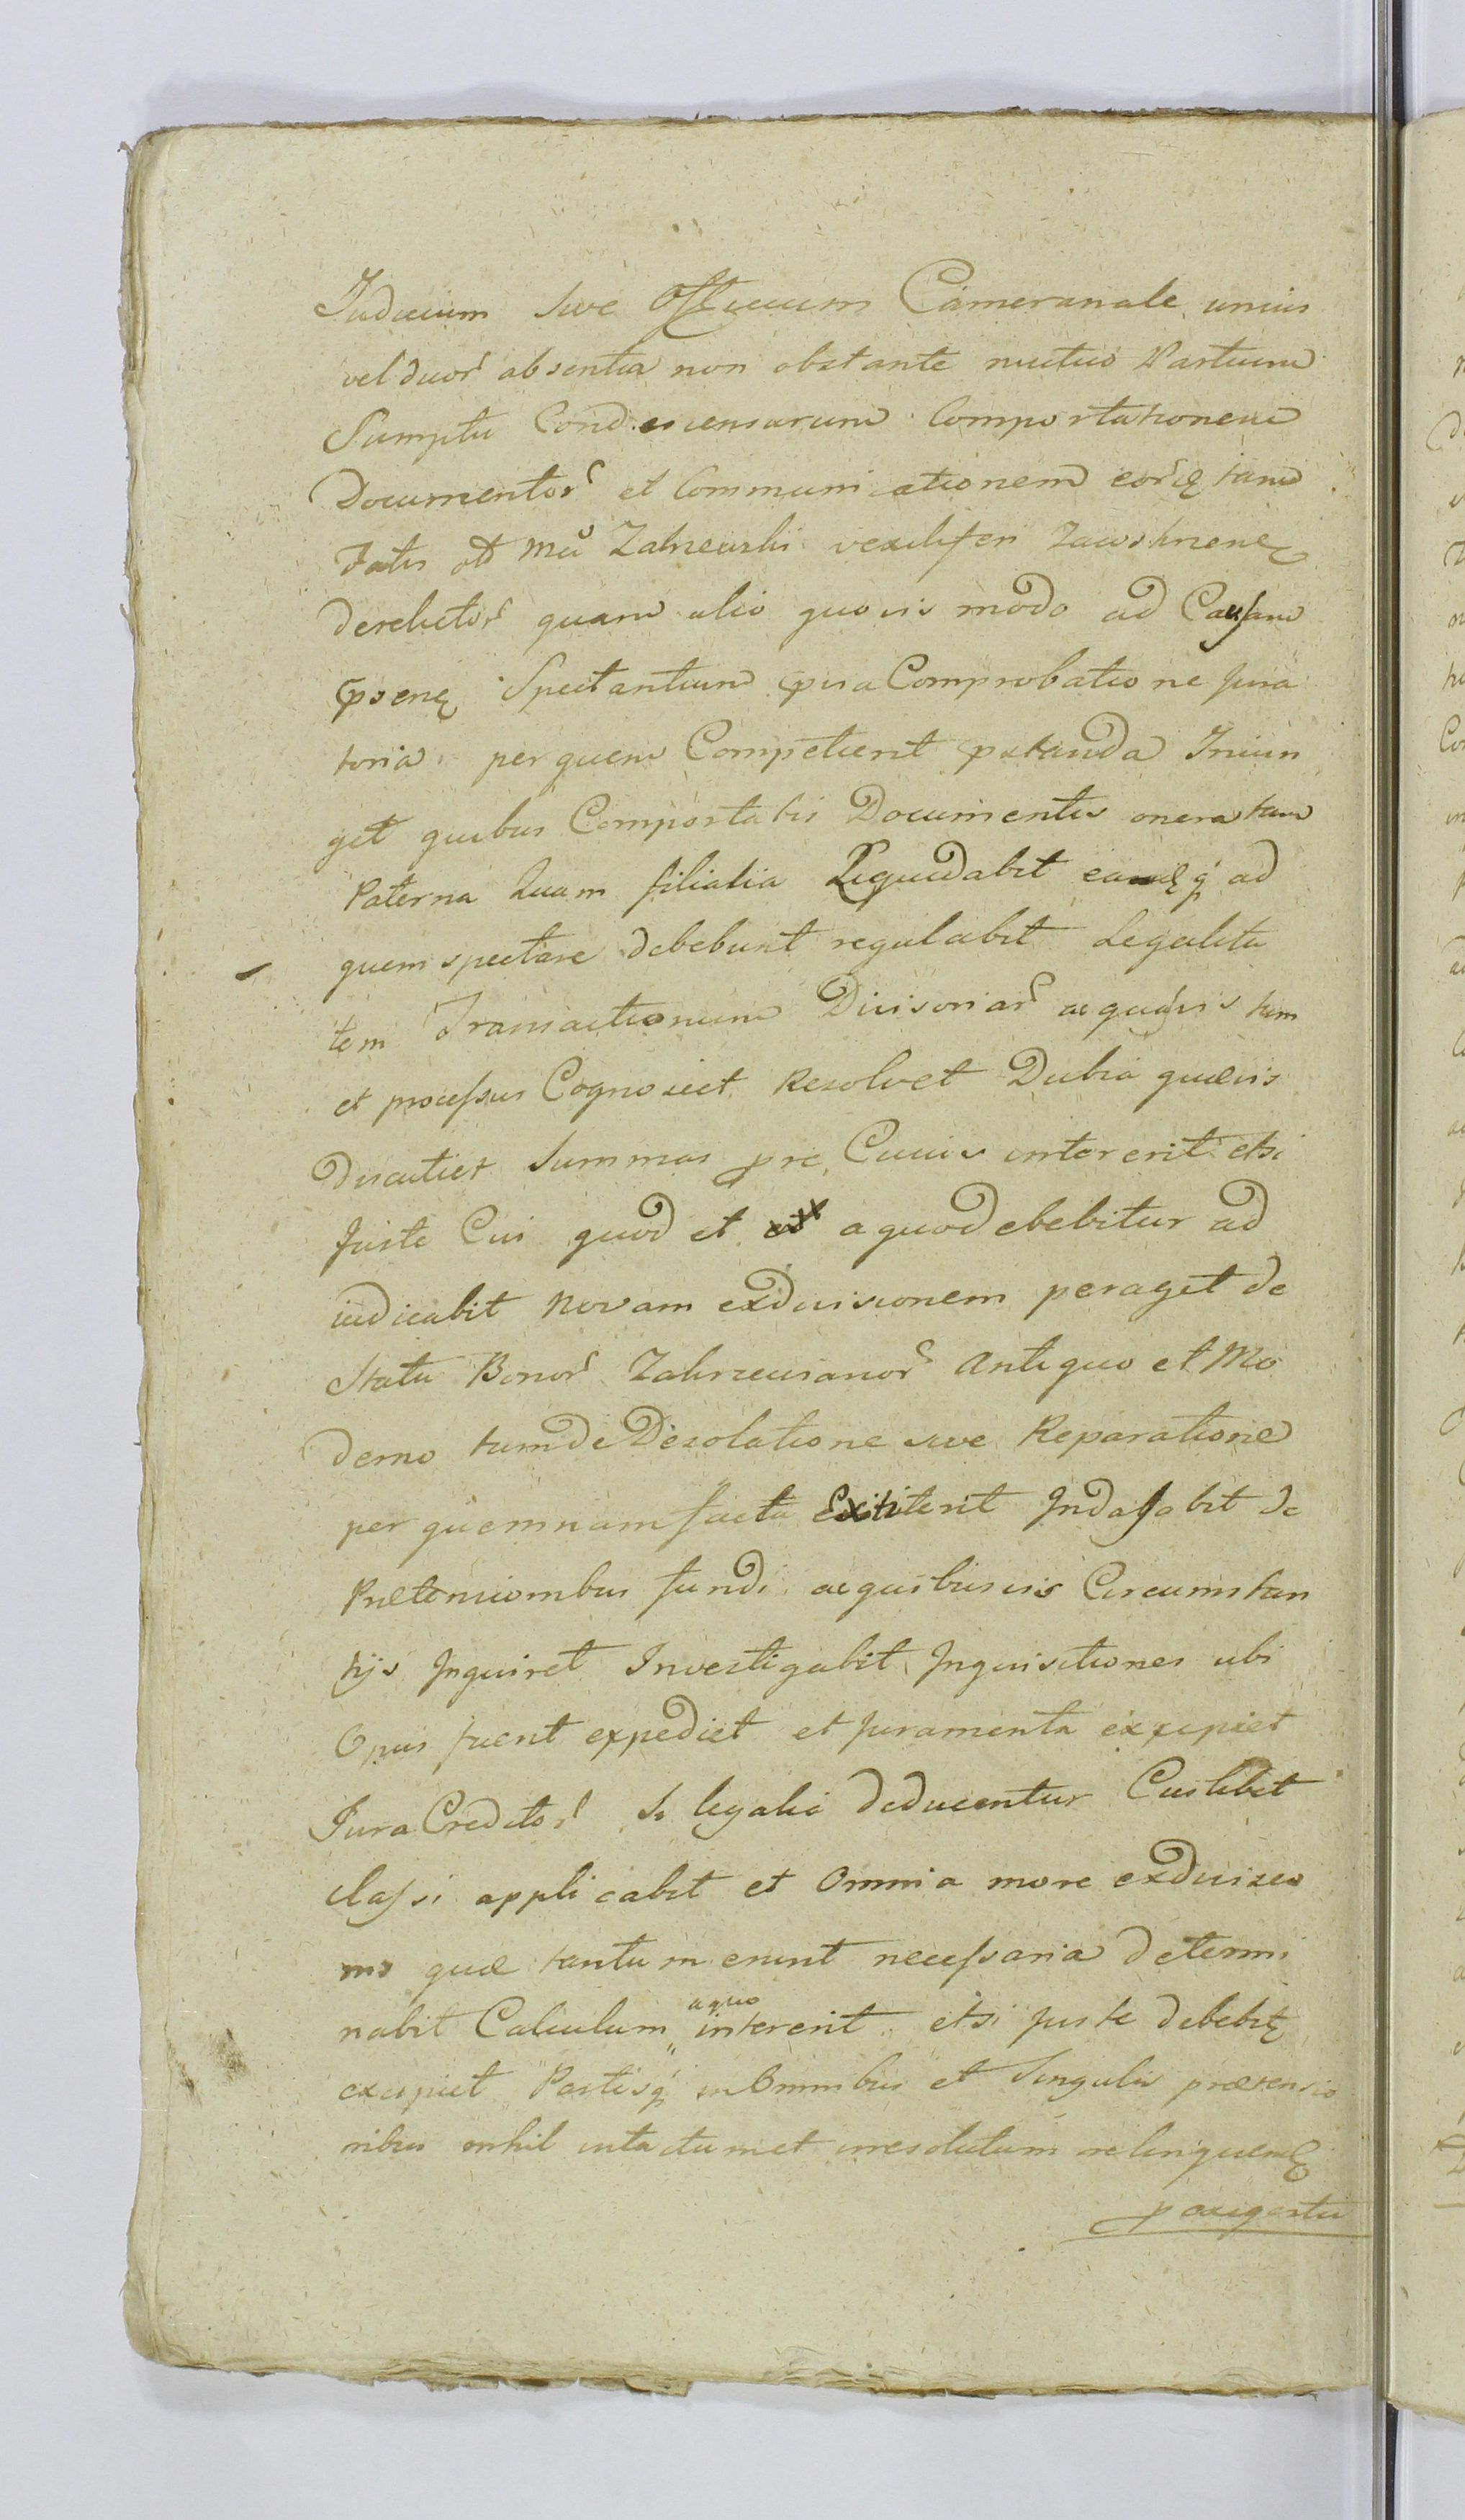 Judicium sive Officium Cameranale unius
vel duor absentia non obstante mutuo Partium
Sumptu Condescensarum Comportationem
Documentor et Communicationem eorq tam
Fatis Mci Zakrzewski vexiliferi
derelictor quam alio quovis modo ad Causam
psenq Spectantium pvia Comprobatione Jura
toria per quem Competierit pstanda Iniun
get quibus Comportatis Documentis onera tam
Paterna Quam filialia Liquidabit ad
quem spectare debebunt regulabit Legalita
tem Transactionum Divisoriar ac quasvis tum
et processus Cognoscet Resolvet Dubia quævis
Discutiet Summas pre Cuius intererit etsi
Juste Cui quod et a quo debebitur ad
iudicabit Novam exdivisionem peraget de
Statu Bonor Zakrzewianor Antiquo et Mo
derno tum de Desolatione sive Reparatione
per quemnam facta Extiterit Indagabit de
Prætensionibus fundi ac quibusvis Circumstan
tijs Inquiret Investigabit Inquisitiones ubi
Opus fuerit expediet et Juramenta excipiet
Jura Creditor Si legalia deducentur Cuilibet
Classi applicabit et Omnia more exdivisio
nis quæ tantum erunt necessaria determi
nabit Calculum aquo intererit etsi juste debebit
excipiet Partisq in Omnibus et Singulis prætensio
nibus nihil intactum et irresolutum relinquend